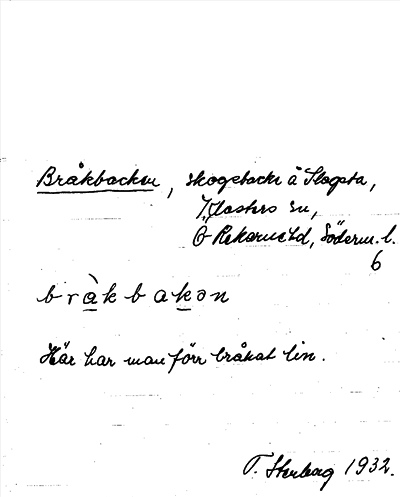 Bråkbacken, skogsbacke å Slagsta,
Klosters sn,
Ö Rekarne hd, Söderm. l.
6
bràkbakən
Här har man förr bråkat lin.
T. 1932.